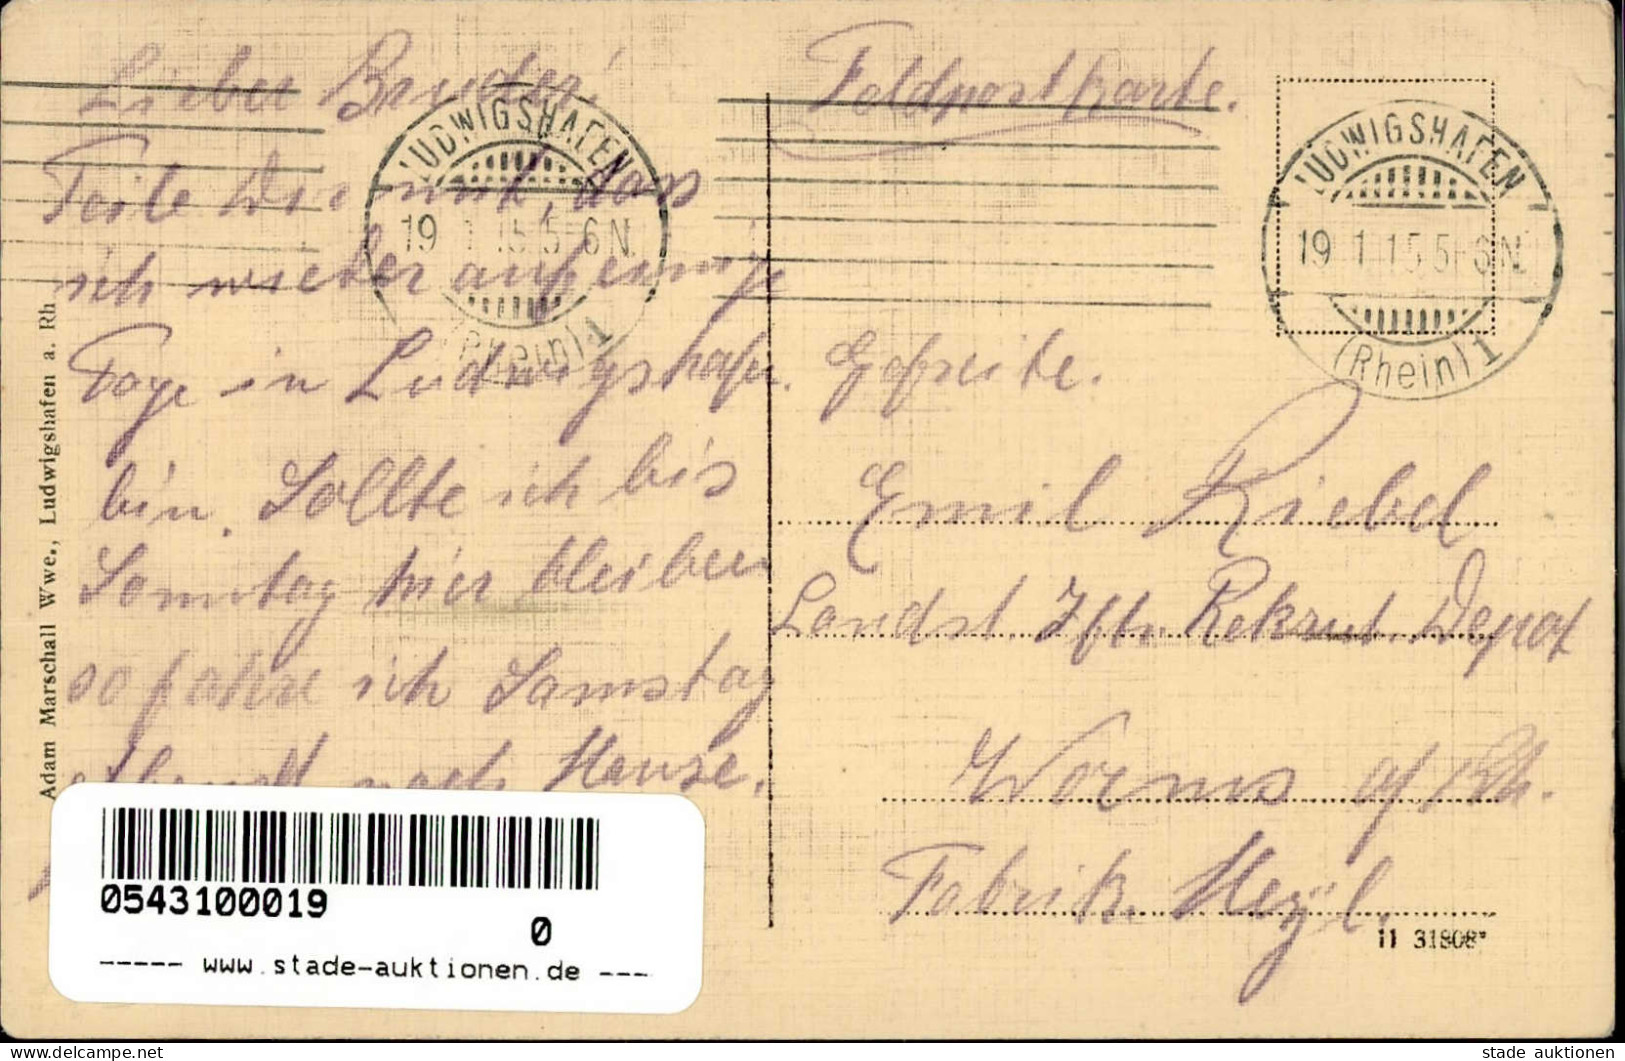 Lieber Bruder!
Teile Dir mit, dass
ich wieder auf einig
Tage in Ludwigshafen
bin. Sollte ich bis
Sonntag hier bleiben
so fahre ich Samstag
abend nach Hause.
Feldpostkarte.
LUDWIGSHAFEN
19 1 15 5-6 N.
(Rhein) 1
LUDWIGSHAFEN
19 1 15 5-6 N.
(Rhein) 1
Gefreite.
Emil Riebel
Landst. Iftr. Rekrut. Depot
Worms a/Rh.
Fabrik Heyl.
11 31808*
Adam Marschall Wwe., Ludwigshafen a. Rh
0543100019
0
----- www.stade-auktionen.de ---
delcampe.net
stade auktionen